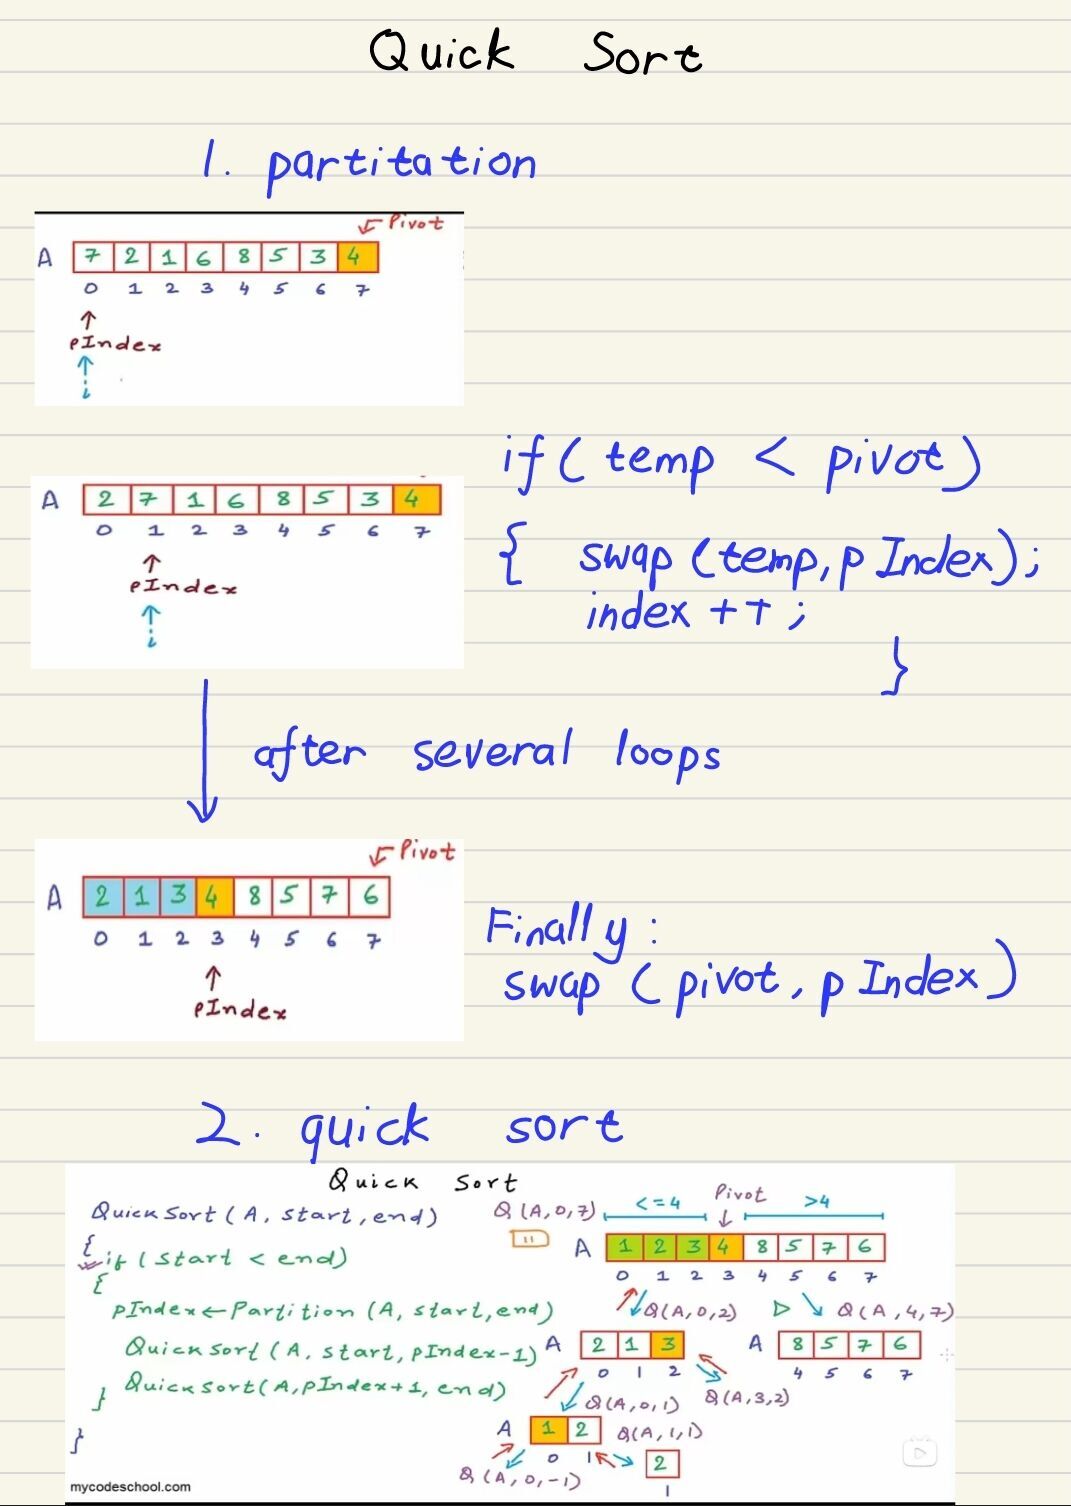 Quick Sort
1. partitation
Pivot
A 7 2 1 6 8 5 3 4
0 1 2 3 4 5 6 7
pIndex
i
A 2 7 1 6 8 5 3 4
0 1 2 3 4 5 6 7
pIndex
i
if( temp < pivot)
{ swap (temp, pIndex);
index ++;
}
after several loops
Pivot
A 2 1 3 4 8 5 7 6
0 1 2 3 4 5 6 7
pIndex
Finally:
swap (pivot, pIndex)
2. quick sort
Quick Sort
QuickSort (A, start, end)
{
if (start < end)
{
pIndex ← Partition (A, start, end)
QuickSort (A, start, pIndex-1)
QuickSort (A, pIndex+1, end)
}
}
mycodeschool.com
Q(A,0,7)
<=4
Pivot
>4
A 1 2 3 4 8 5 7 6
0 1 2 3 4 5 6 7
Q(A,0,2)
Q(A,4,7)
A 2 1 3
0 1 2
A 8 5 7 6
4 5 6 7
Q(A,0,1)
Q(A,3,2)
A 1 2
0 1
Q(A,1,1)
Q(A,0,-1)
2
1